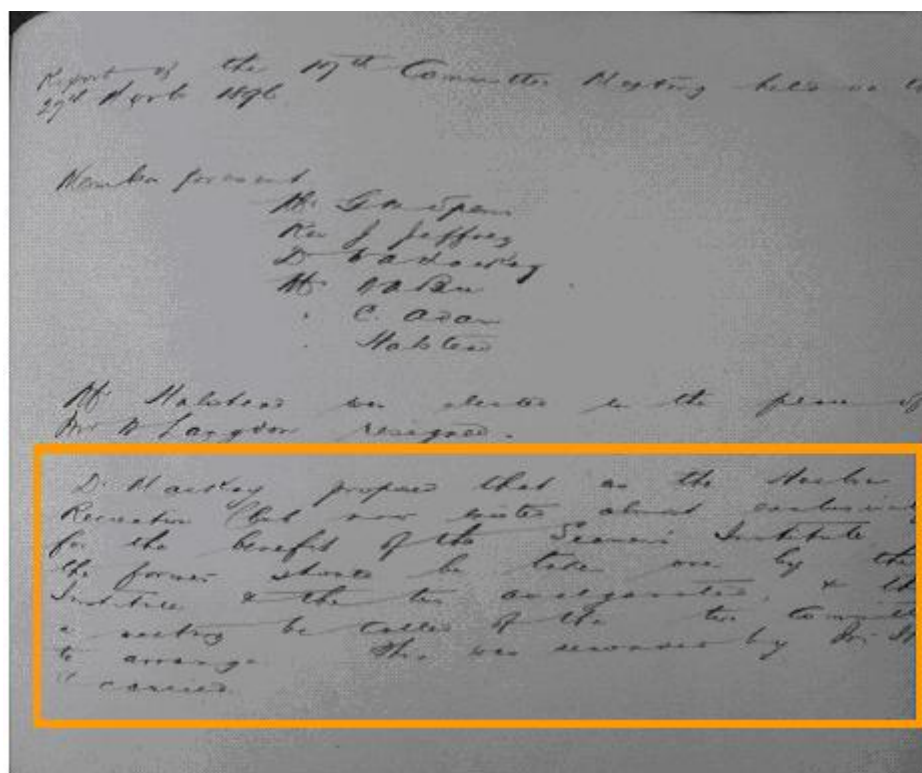 Report of the 107th Committee Meeting held on
27th 1896
Members present
Mr
Rev J Jeffrey
Dr
Mr
" C. Adam
" Halstead
Mr Halstead was elected in the place of
Mr W Langdon resigned.
Dr Mackey proposed that as the
Recreation Club now exists almost exclusively
for the benefit of the Seamen's Institute
the former should be taken over by the
Institute & the two amalgamated, &
a meeting be called of the two
to arrange. This was seconded by Mr
& carried.